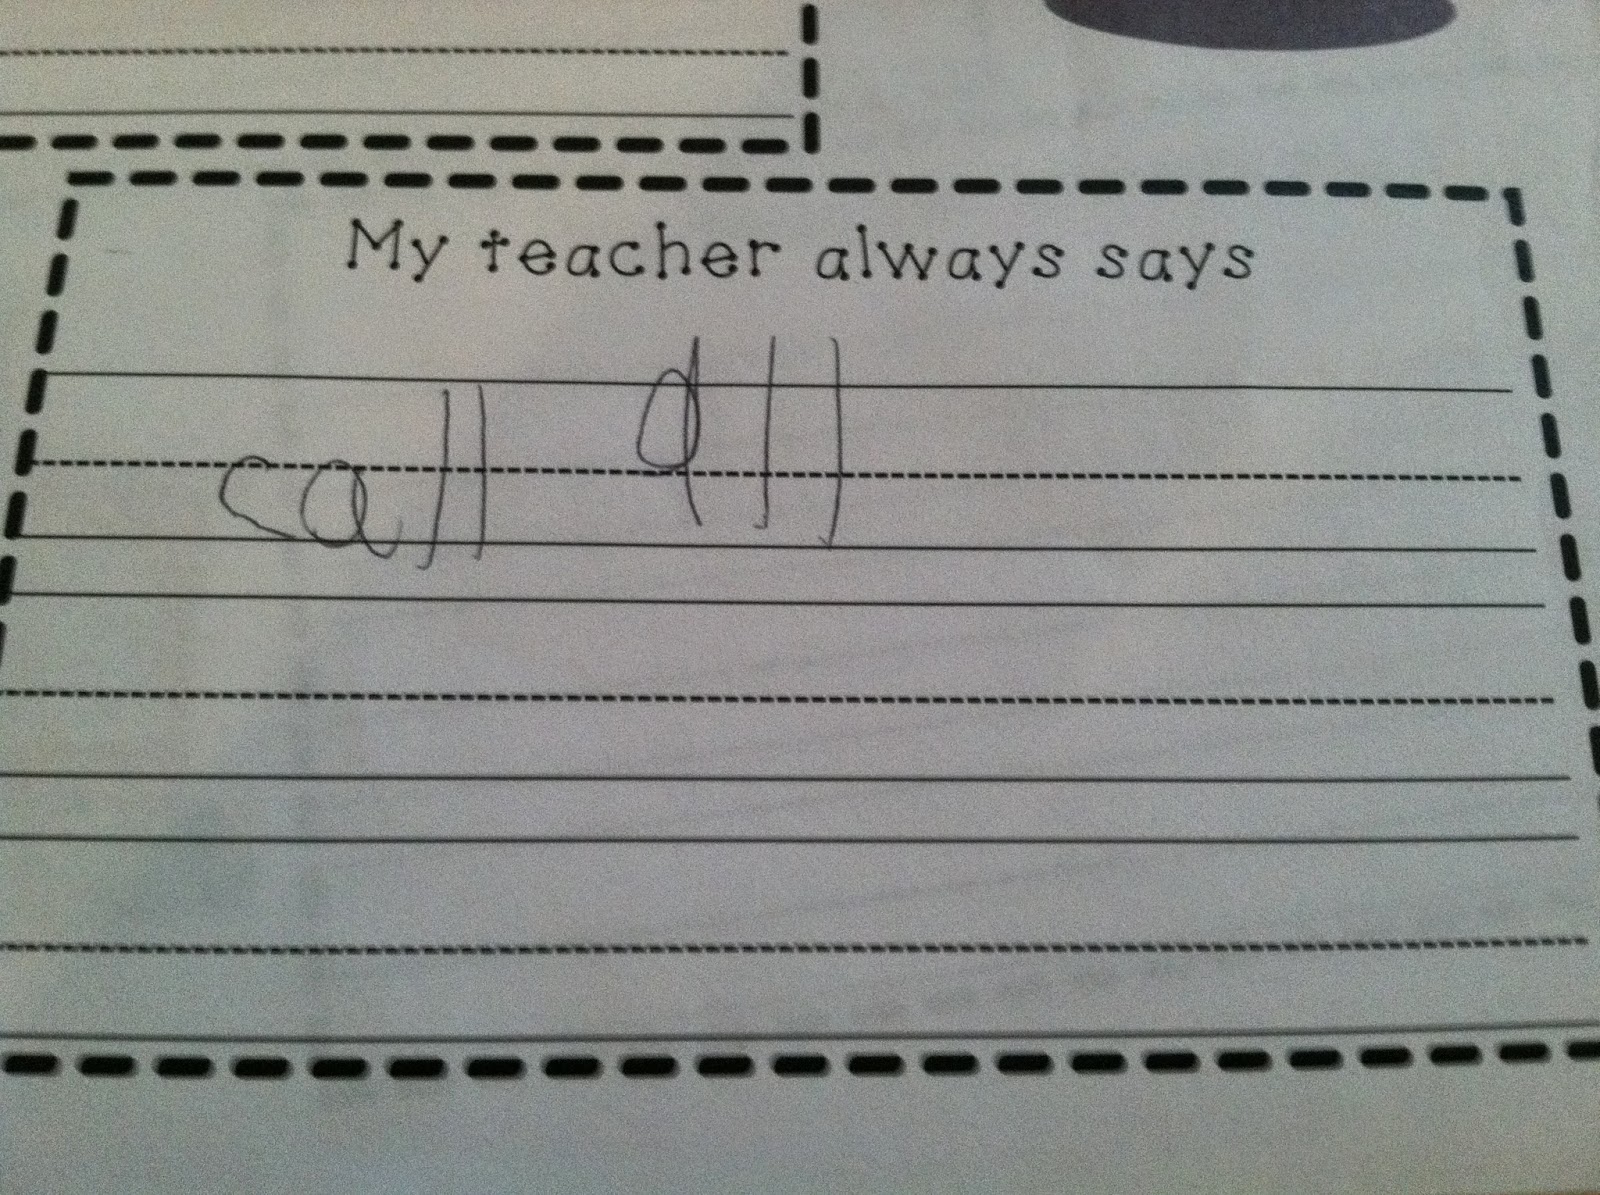 My teacher always says
call all